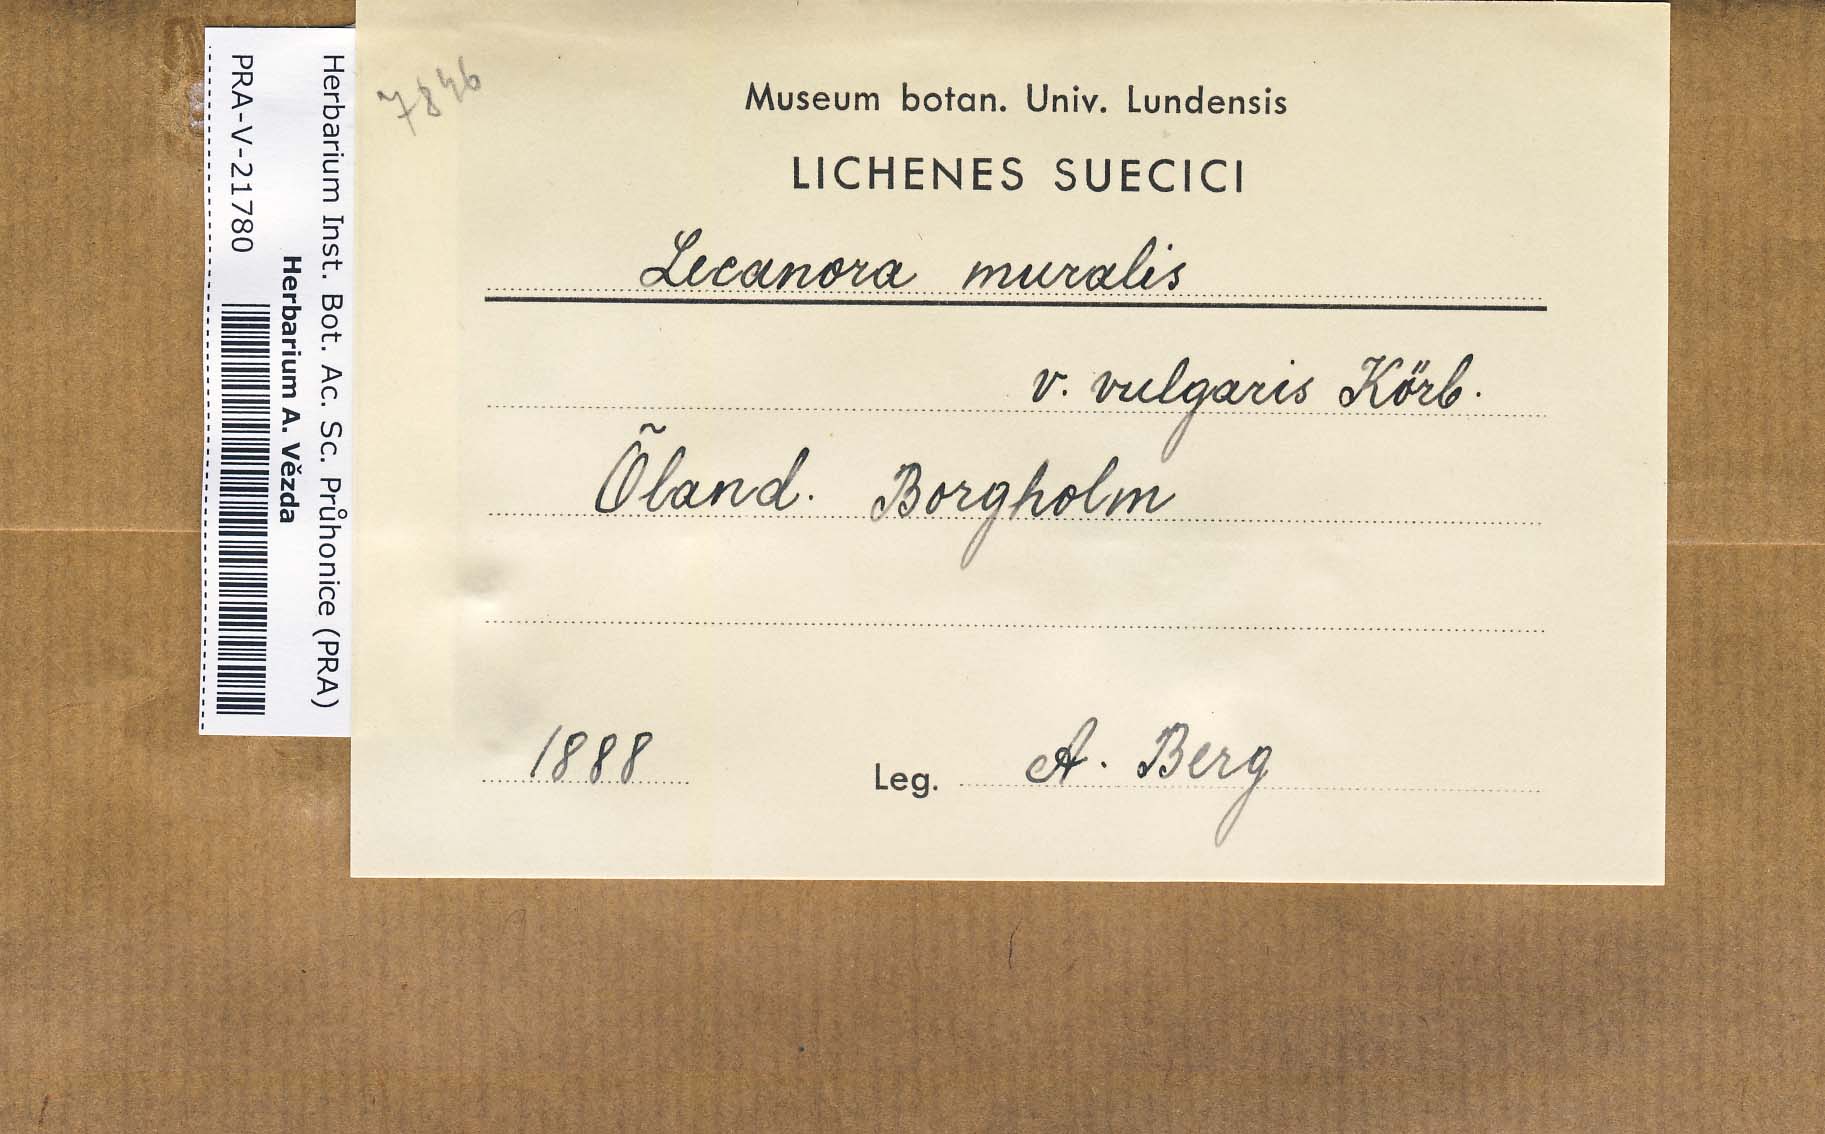 Herbarium Inst. Bot. Ac. Sc. Průhonice (PRA)
Herbarium A. Vězda
PRA-V-21780
7846
Museum botan. Univ. Lundensis
LICHENES SUECICI
Lecanora muralis
v. vulgaris Körb.
Öland. Borgholm
1888 Leg. A. Berg